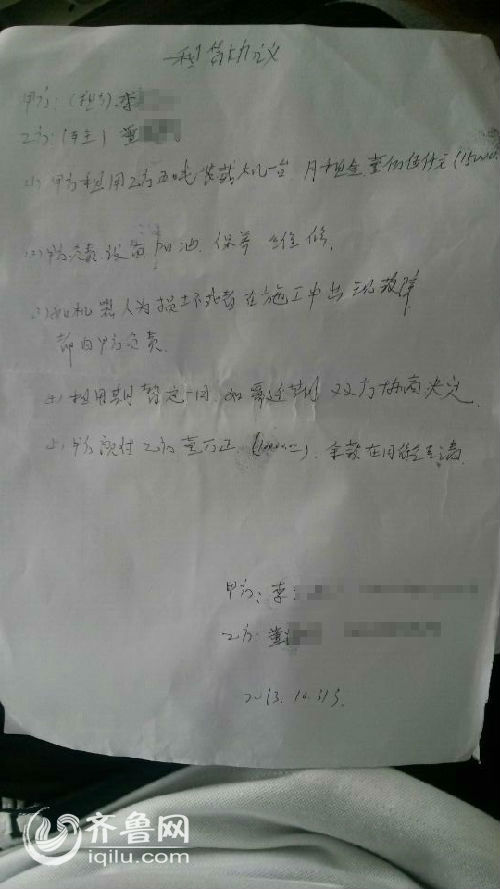 租赁协议
甲方:(租方)李
乙方:(车主)董
(1)甲方租用乙方五吨装载机一台 月租金 壹万伍仟元(15000
(2)甲方负责设备加油、保养 维修.
(3)如机器人为损坏或者在施工中出现故障
都由甲方负责.
(4)租用期暂定一月 如 双方协商决定
(5)甲方预付乙方壹万正 余款在
甲方:李
乙方:董
2013.10.31号.
齐鲁网
iqilu.com